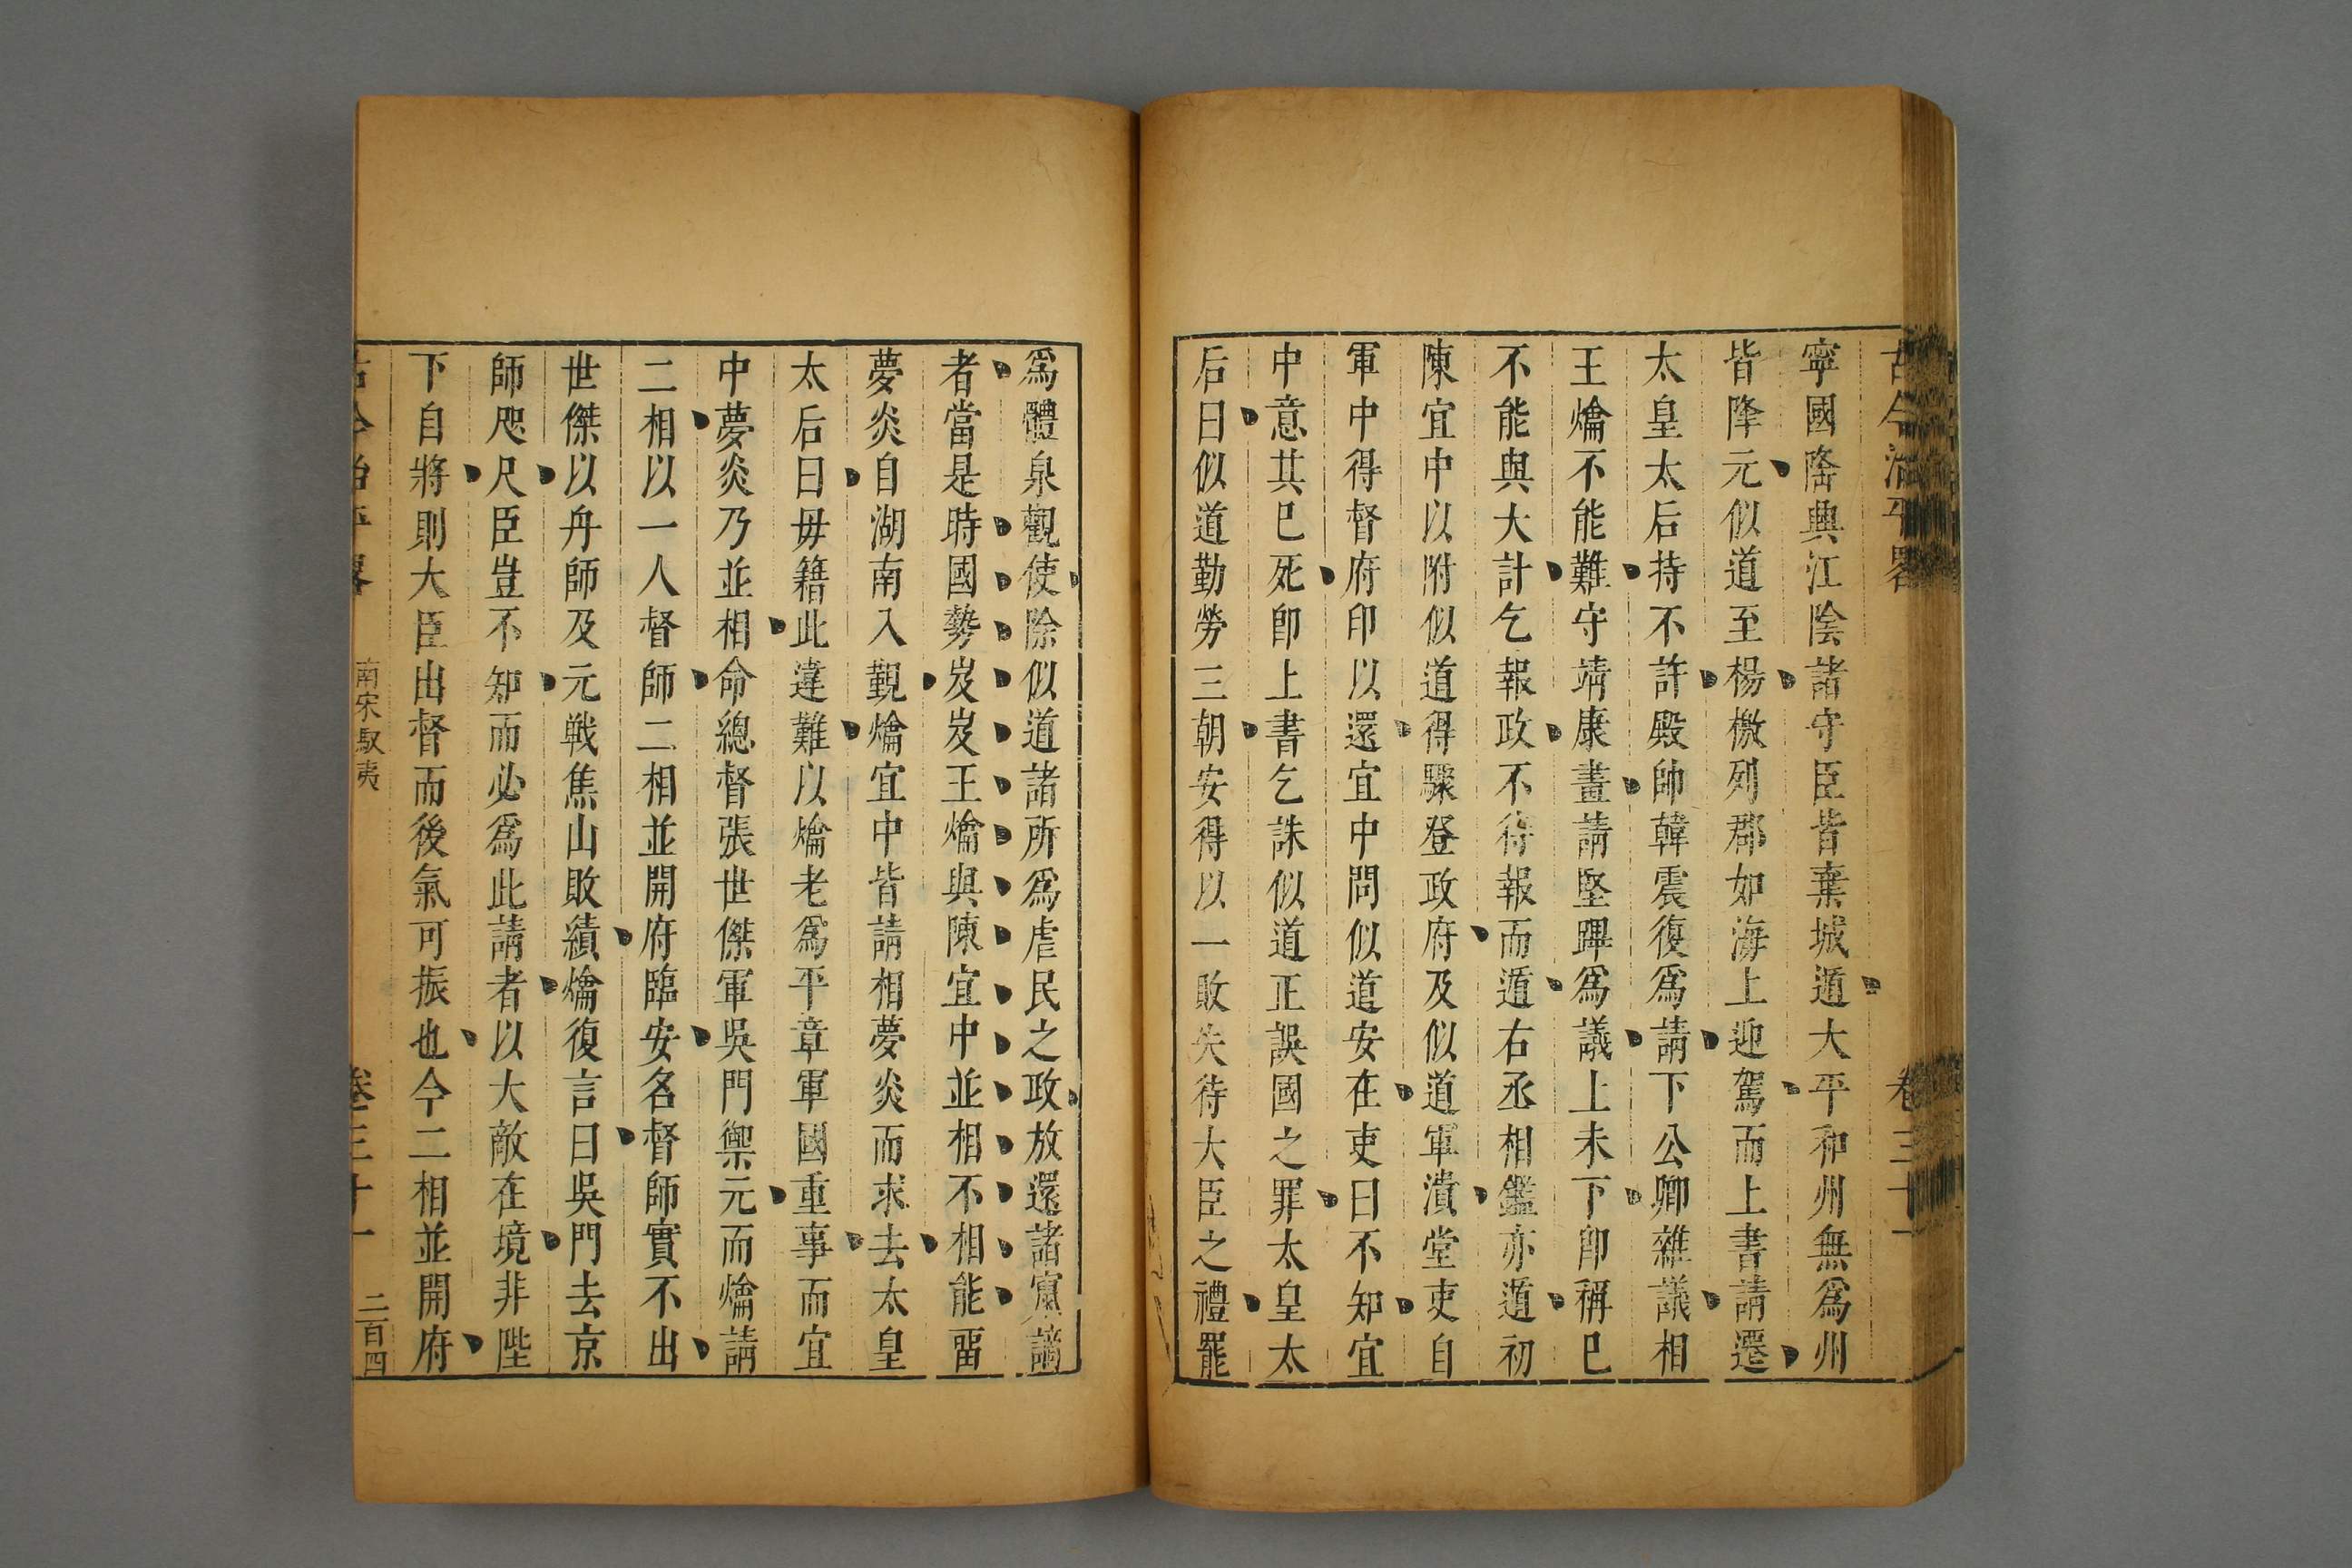 古今治平畧 卷三十一
寧國隆興江陰諸守臣皆棄城遁大平和州無爲州
皆降元似道至楊檄列郡如海上迎駕而上書請遷
太皇太后持不許殿帥韓震復爲請下公卿雜議相
王爚不能難守靖康畫請堅蹕爲議上未下卽稱已
不能與大計乞報政不待報而遁右丞相鑑亦遁初
陳宜中以附似道得驟登政府及似道軍潰堂吏自
軍中得督府印以還宜中問似道安在吏曰不知宜
中意其已死卽上書乞誅似道正誤國之罪太皇太
后曰似道勤勞三朝安得以一敗失待大臣之禮罷
爲醴泉觀使除似道諸所爲虐民之政放還諸竄謫
者當是時國勢岌岌王爚與陳宜中並相不相能畱
夢炎自湖南入覲爚宜中皆請相夢炎而求去太皇
太后曰毋籍此違難以爚老爲平章軍國重事而宜
中夢炎乃並相命總督張世傑軍吳門禦元而爚請
二相以一人督師二相並開府臨安名督師實不出
世傑以舟師及元戰焦山敗績爚復言曰吳門去京
師咫尺臣豈不知而必爲此請者以大敵在境非陛
下自將則大臣出督而後氣可振也今二相並開府
古今治平畧 南宋馭夷 卷三十一 二百四